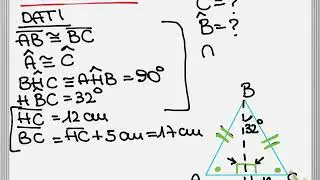 DATI
AB ≅ BC
Â ≅ Ĉ
BĤC ≅ AĤB = 90°
HB̂C = 32°
HC = 12 cm
BC = HC + 5 cm = 17 cm
Ĉ = ?
B̂ = ?
B
32°
A
C